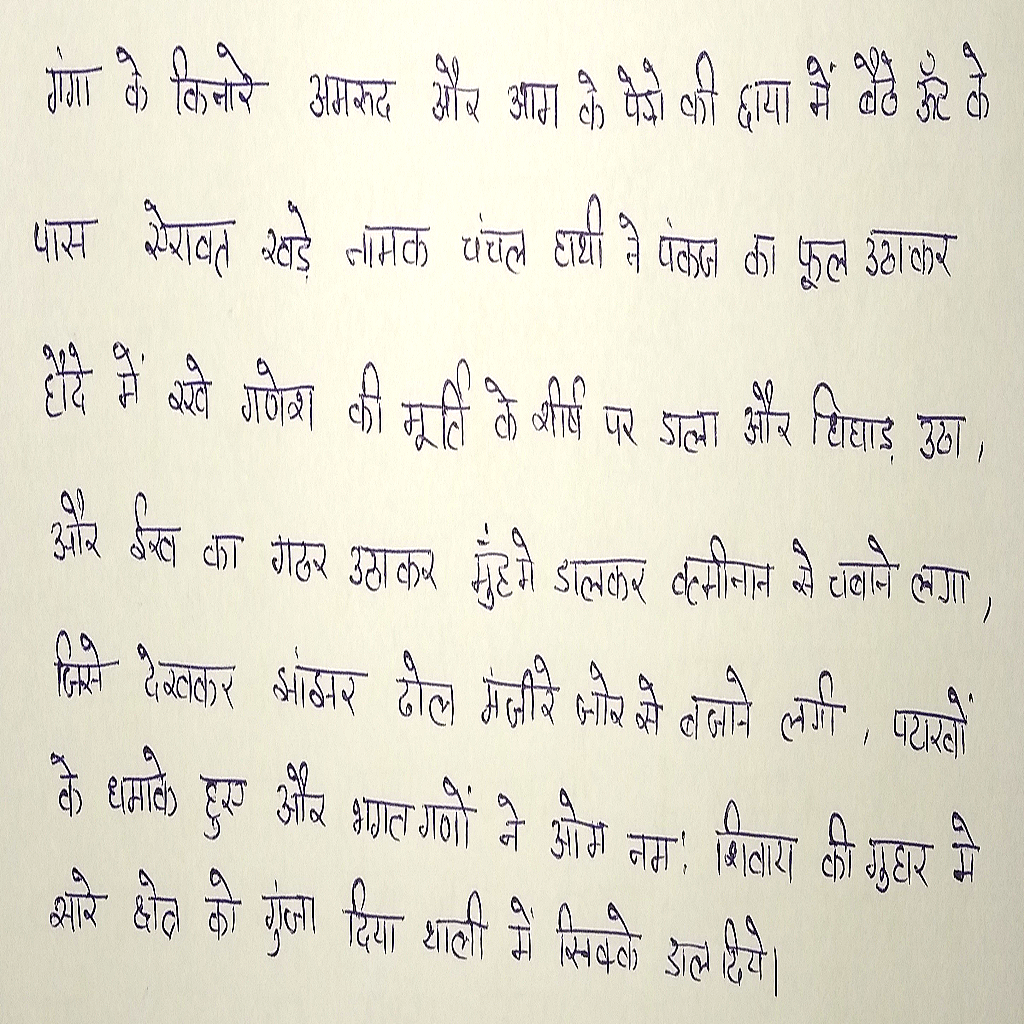 गंगा के किनारे अमरुद और आम के पेड़ो की छाया में बैठे ऊँट के
पास ऐरावत खड़े नामक चंचल हाथी ने पंकज का फूल उठाकर
हौदे में रखे गणेश की मूर्ति के शीर्ष पर डाला और चिंघाड़ उठा,
और ईख का गठर उठाकर मुँह मे डालकर इत्मीनान से चबाने लगा,
जिसे देखकर झांझर ढोल मंजीरे जोर से बजाने लगी, पटाखों
के धमाके हुए और भगत गणों ने ओम नम: शिवाय की गुहार मे
सारे क्षेत्र को गुंजा दिया थाली में सिक्के डाल दिये।